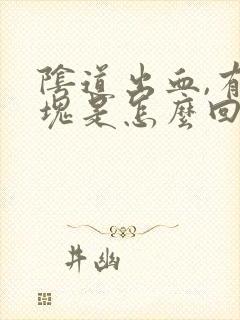 陰道出血,有
塊是怎麼回
井幽